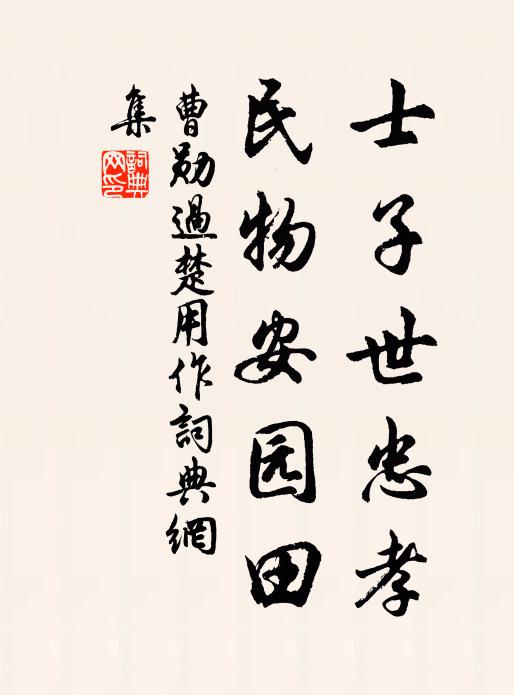 士子世忠孝
民物安园田
曹勋過楚用作詞典網
集
詞典网印